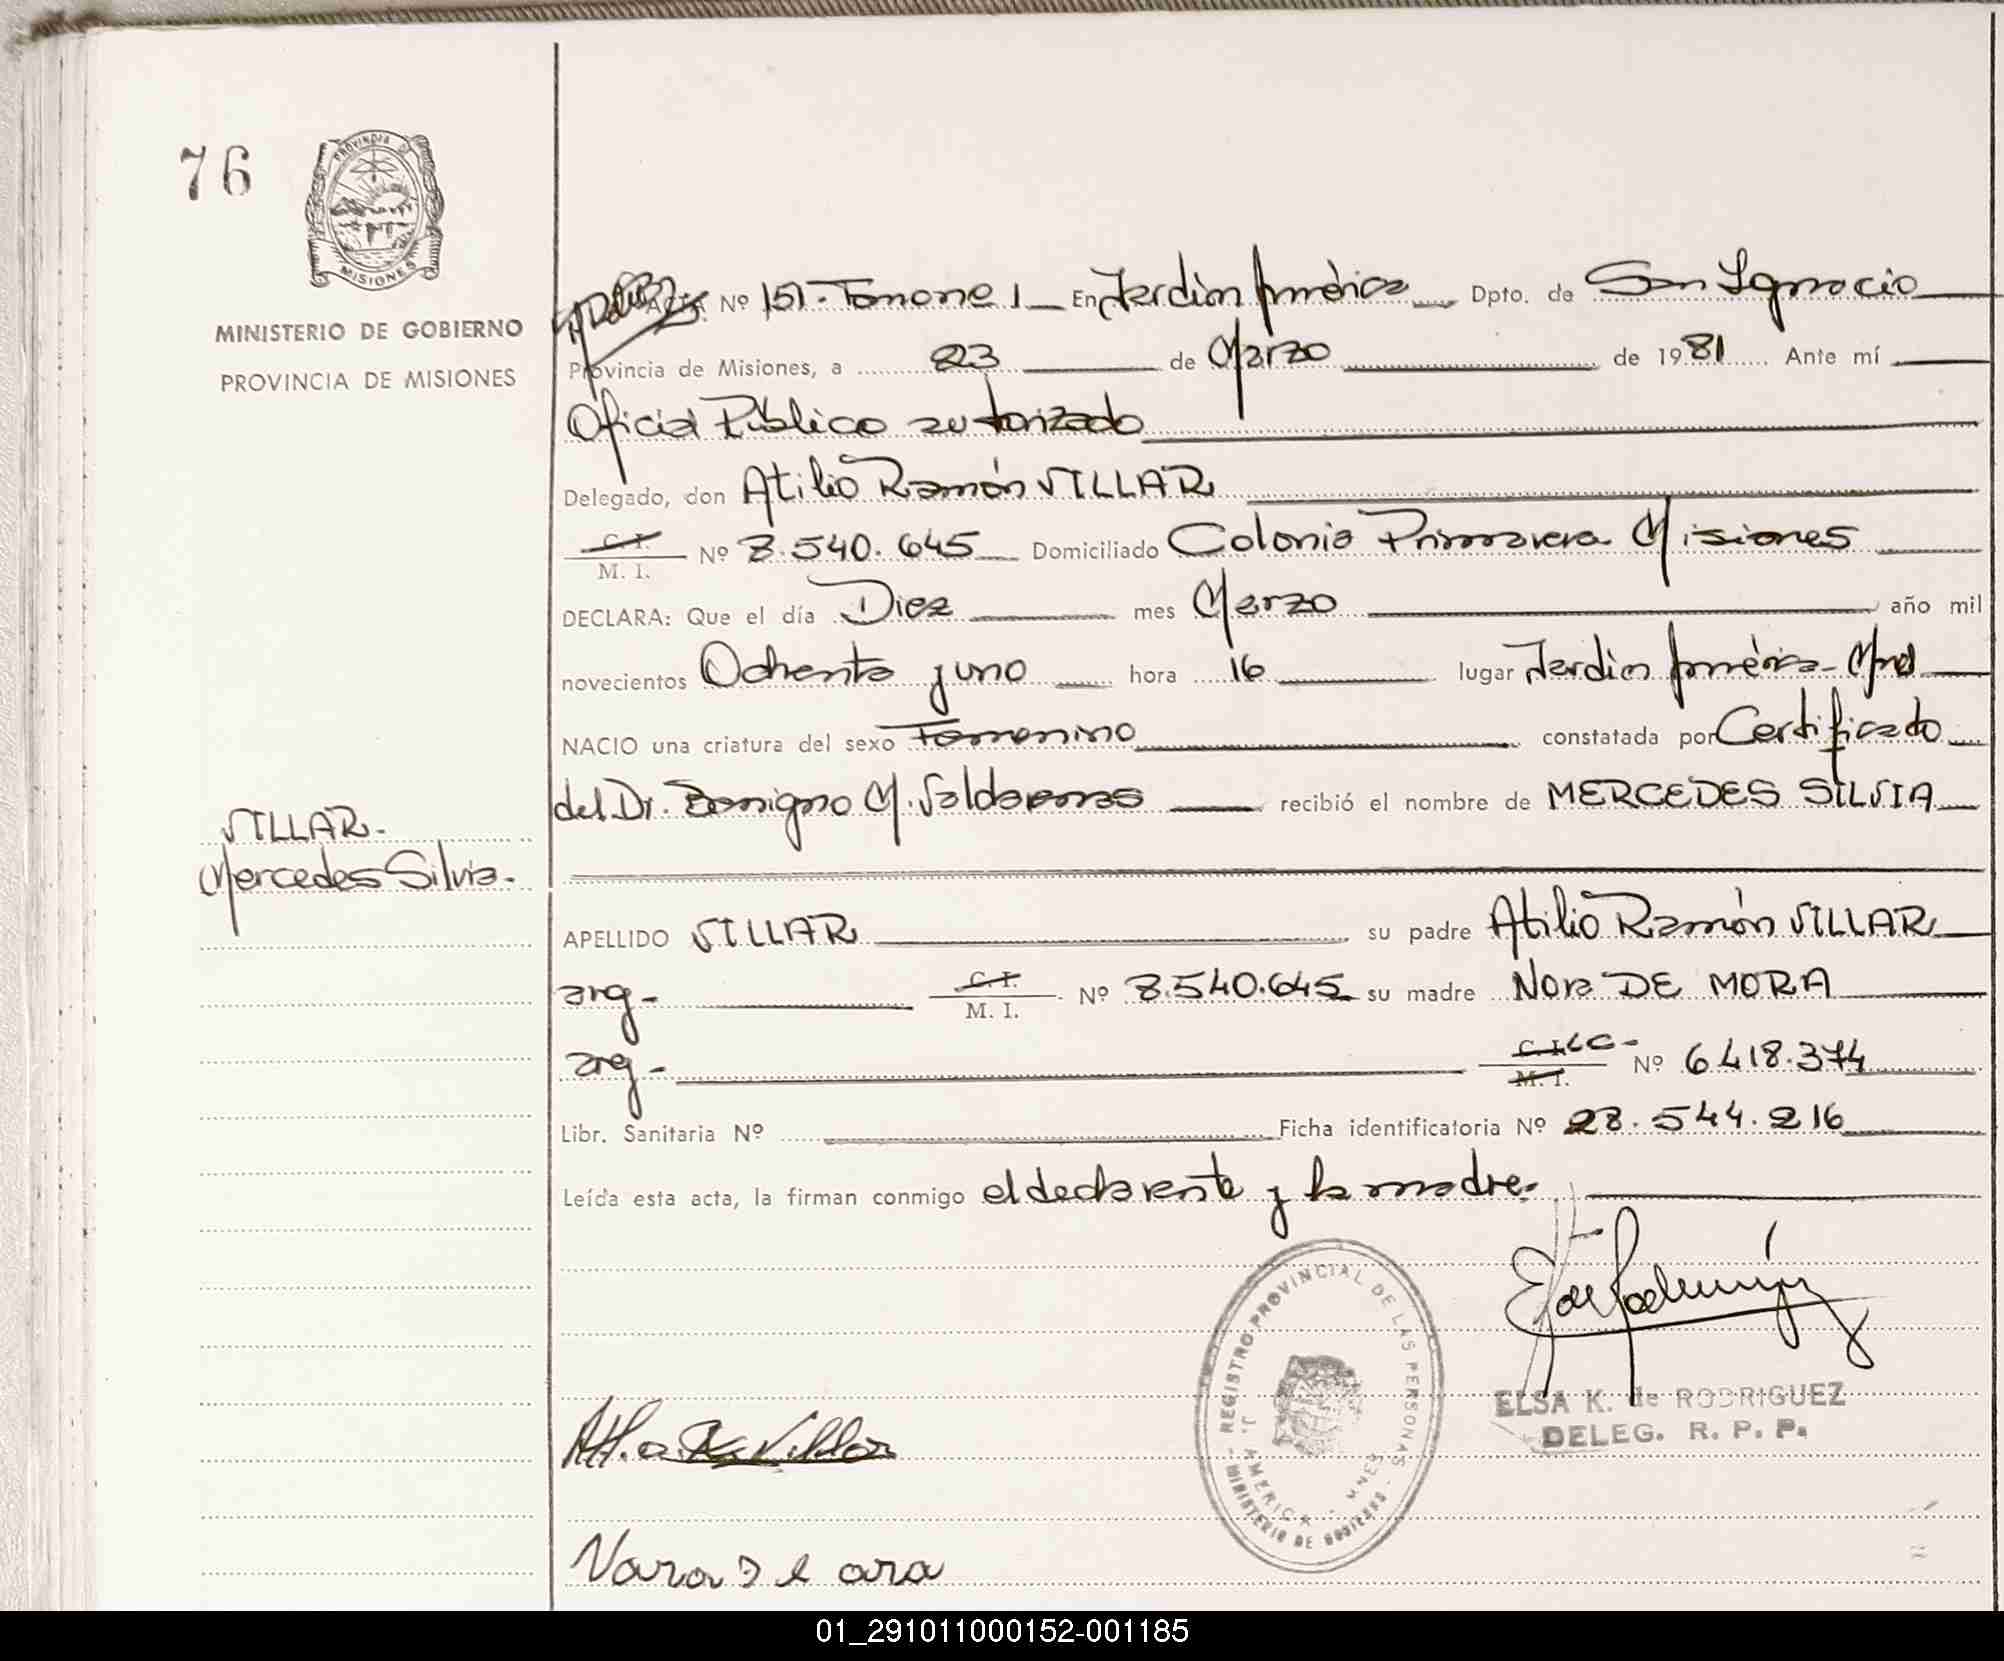 76
PROVINCIA DE
MISIONES
MINISTERIO DE GOBIERNO
PROVINCIA DE MISIONES
ACTA Nº 151. Tomo ne 1 En Jardin América Dpto. de San Ignacio
Provincia de Misiones, a 23 de Marzo de 1981 Ante mí
Oficial Público autorizado
Delegado, don Atilio Ramón VILLAR
C. I.
M. I. Nº 8.540.645 Domiciliado Colonia Primavera Misiones
DECLARA: Que el día Diez mes Marzo año mil
novecientos Ochenta y uno hora 16 lugar Jardin América-Mnes
NACIO una criatura del sexo Femenino constatada por Certificado
del Dr. Benigno M. Valdovinos recibió el nombre de MERCEDES SILVIA
VILLAR-
Mercedes Silvia.
APELLIDO VILLAR su padre Atilio Ramón VILLAR
arg- C. I.
M. I. Nº 8.540.645 su madre Nora DE MORA
arg- C. I. LC-
M. I. Nº 6.418.374
Libr. Sanitaria Nº Ficha identificatoria Nº 28.544.216
Leída esta acta, la firman conmigo el declarante y la madre.
REGISTRO PROVINCIAL DE LAS PERSONAS
J. AMERICA - MNES
MINISTERIO DE GOBIERNO
E de Rodriguez
ELSA K. de RODRIGUEZ
DELEG. R. P. P.
Villar
01_291011000152-001185